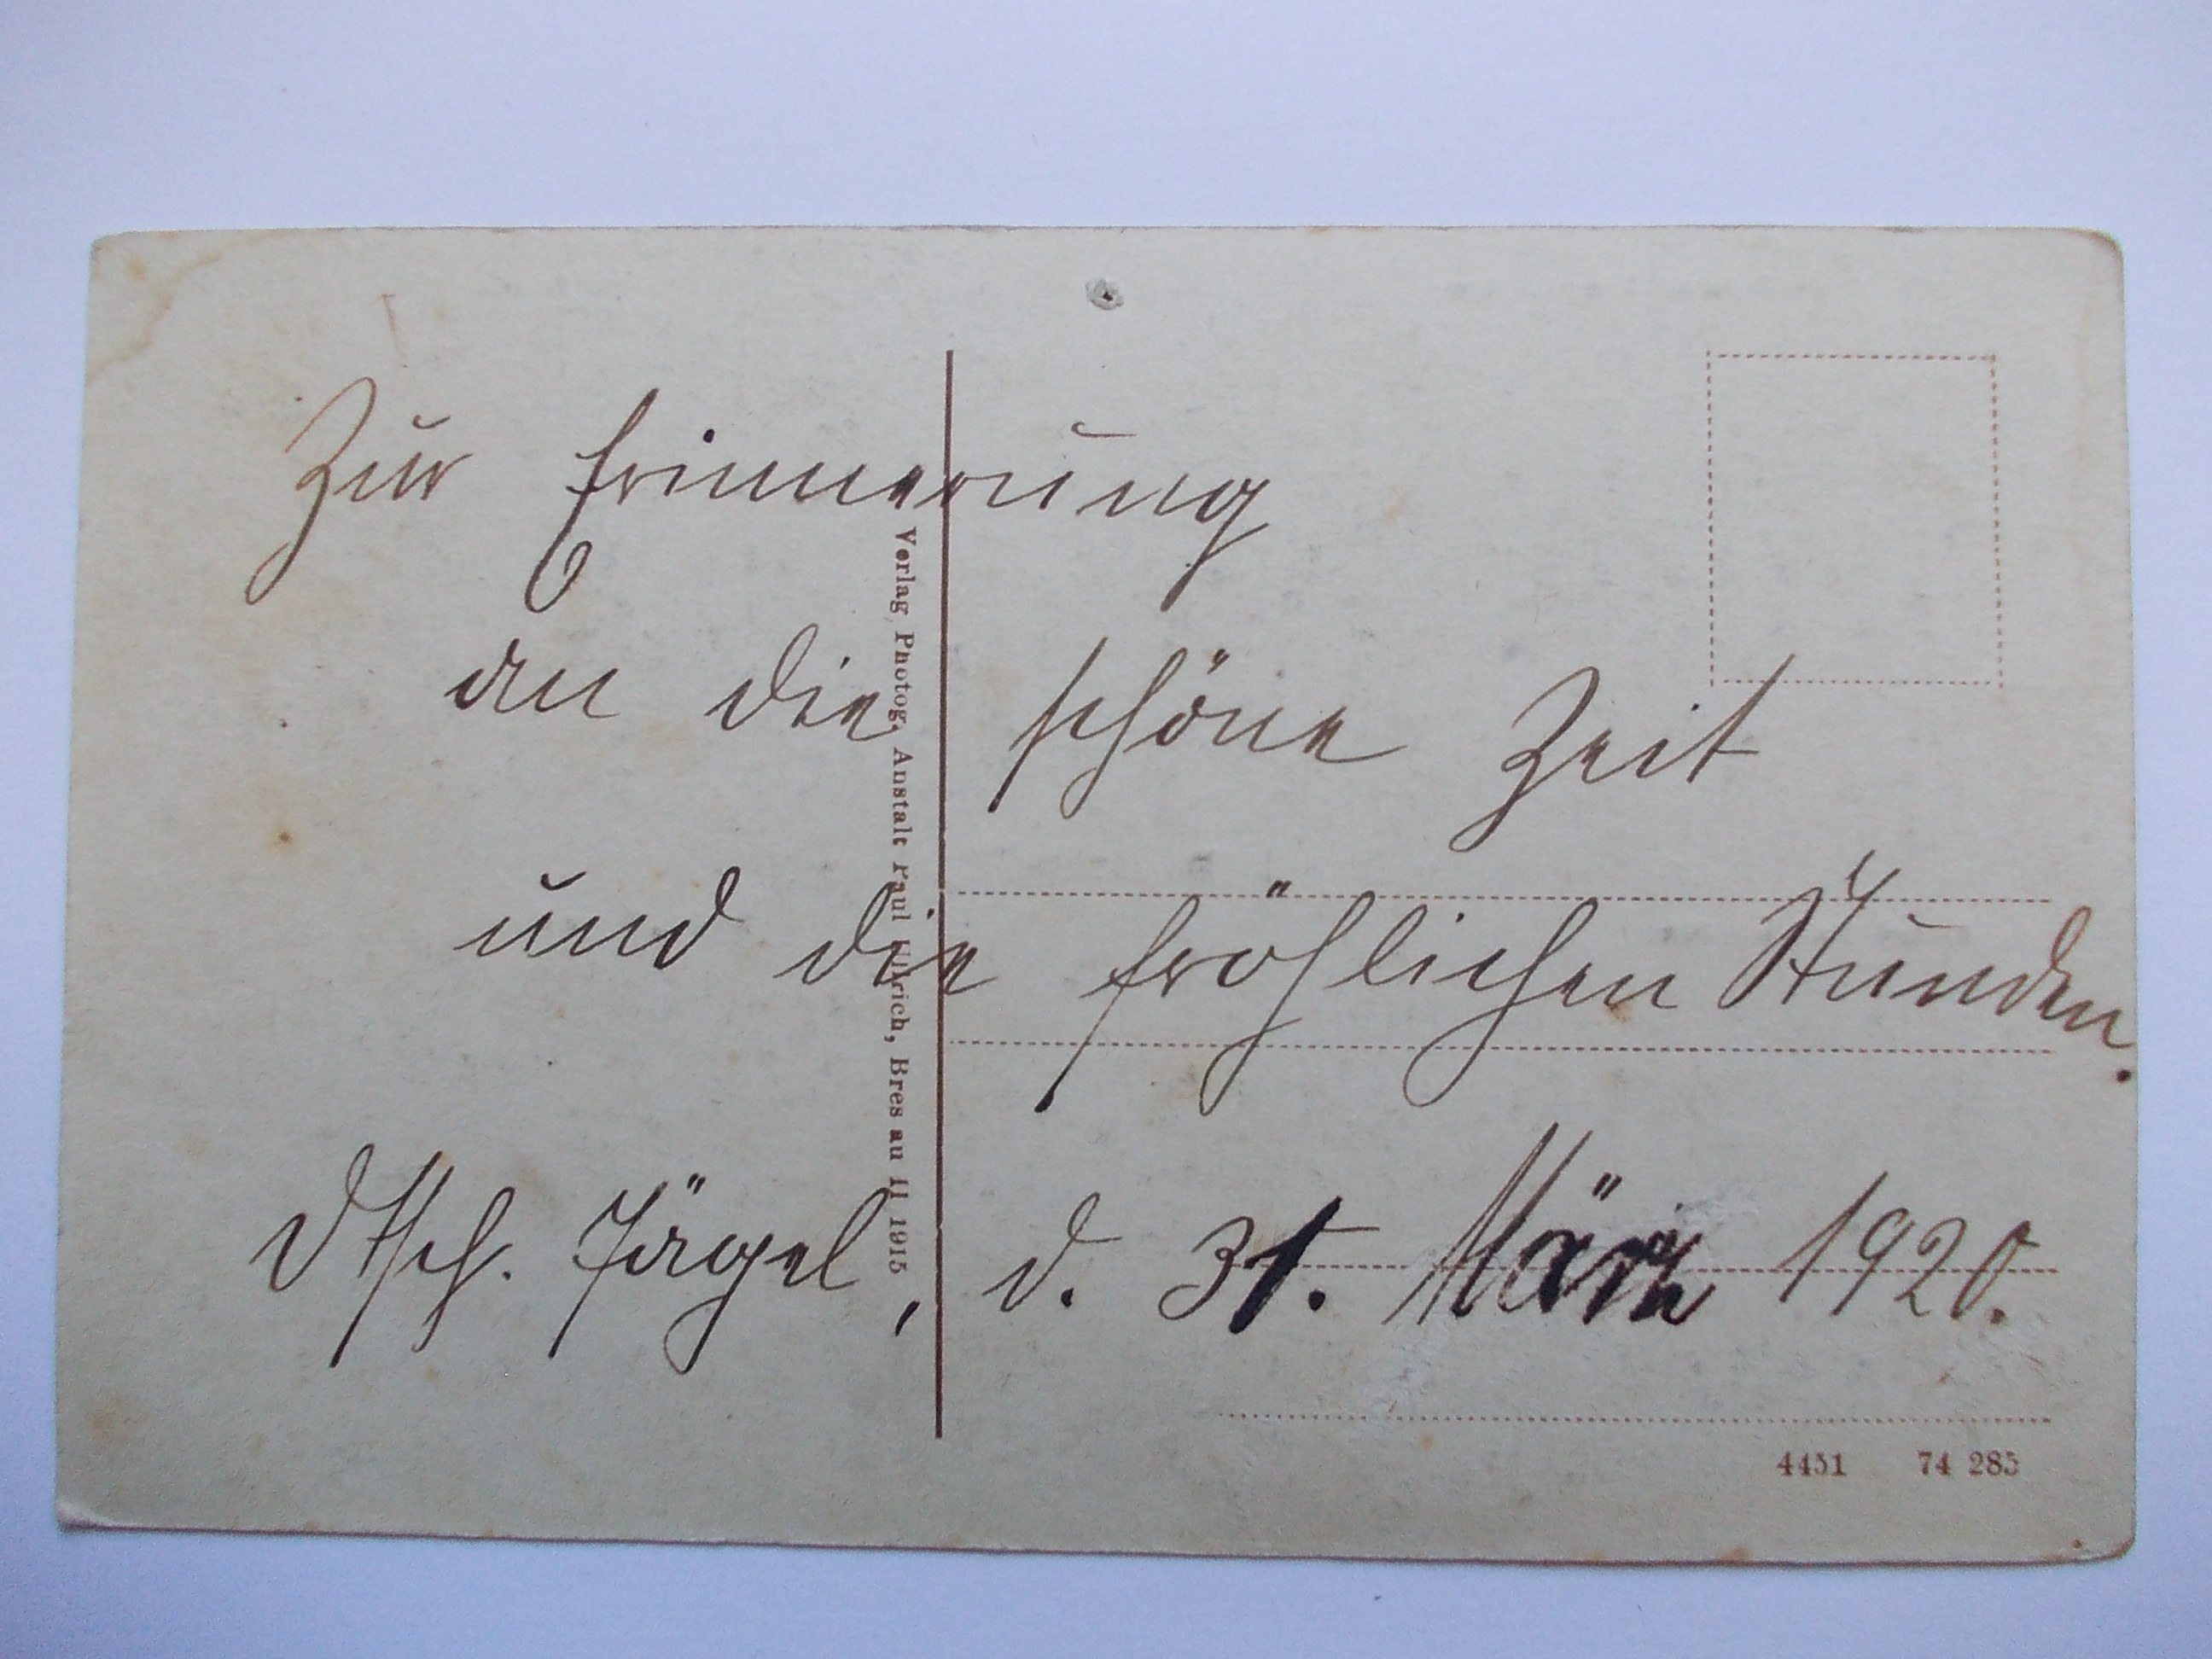 Zur Erinnerung
an die schöne Zeit
und die fröhlichen Stunden.
Dtsch. Jägel, d. 31. März 1920.
Verlag Photog. Anstalt Paul Bres au II 1915
4451 74 285